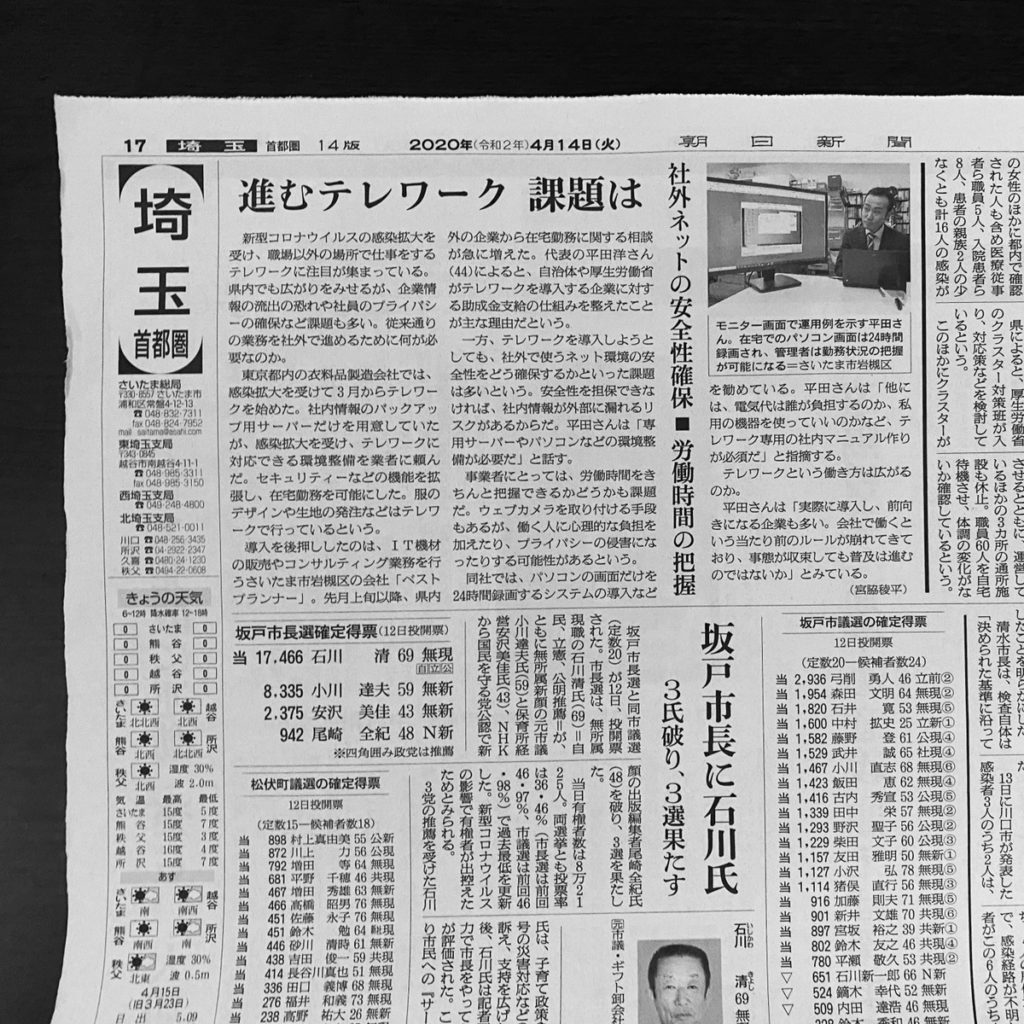 17
埼玉
首都圏
14版
2020年(令和2年)4月14日(火)
朝日新聞
埼玉
首都圏
さいたま総局
〒330-8557 さいたま市
浦和区常盤4-12-13
☎048-832-7311
fax 048-824-7952
mail saitama@asahi.com
東埼玉支局
〒343-0845
越谷市南越谷4-11-1
☎048-985-3311
fax 048-985-3150
西埼玉支局
☎049-248-4800
北埼玉支局
☎048-521-0011
川口 ☎048-256-3435
所沢 ☎04-2922-2347
久喜 ☎0480-24-1230
秩父 ☎0494-22-0608
進むテレワーク 課題は
社外ネットの安全性確保■労働時間の把握
新型コロナウイルスの感染拡大を
受け、職場以外の場所で仕事をする
テレワークに注目が集まっている。
県内でも広がりをみせるが、企業情
報の流出の恐れや社員のプライバシ
ーの確保など課題も多い。従来通り
の業務を社外で進めるために何が必
要なのか。
東京都内の衣料品製造会社では、
感染拡大を受けて3月からテレワーク
を始めた。社内情報のバックアッ
プ用サーバーだけを用意していた
が、感染拡大を受け、テレワークに
対応できる環境整備を業者に頼ん
だ。セキュリティーなどの機能を拡
張し、在宅勤務を可能にした。服の
デザインや生地の発注などはテレワ
ークで行っているという。
導入を後押ししたのは、IT機材
の販売やコンサルティング業務を行
うさいたま市岩槻区の会社「ベスト
プランナー」。先月上旬以降、県内
外の企業から在宅勤務に関する相談
が急に増えた。代表の平田洋さん
(44)によると、自治体や厚生労働省
がテレワークを導入する企業に対す
る助成金支給の仕組みを整えたこと
が主な理由だという。
一方、テレワークを導入しようと
しても、社外で使うネット環境の安
全性をどう確保するかといった課題
は多いという。安全性を担保できな
ければ、社内情報が外部に漏れるリ
スクがあるからだ。平田さんは「専
用サーバーやパソコンなどの環境整
備が必要だ」と話す。
事業者にとっては、労働時間をき
ちんと把握できるかどうかも課題
だ。ウェブカメラを取り付ける手段
もあるが、働く人に心理的な負担を
加えたり、プライバシーの侵害にな
ったりする可能性があるという。
同社では、パソコンの画面だけを
24時間録画するシステムの導入など
モニター画面で運用例を示す平田さ
ん。在宅でのパソコン画面は24時間
録画され、管理者は勤務状況の把握
が可能になる=さいたま市岩槻区
を勧めている。平田さんは「他に
は、電気代は誰が負担するのか、私
用の機器を使っていいのかなど、テ
レワーク専用の社内マニュアル作り
が必須だ」と指摘する。
テレワークという働き方は広がる
のか。
平田さんは「実際に導入し、前向
きになる企業も多い。会社で働くと
いう当たり前のルールが崩れてきて
おり、事態が収束しても普及は進む
のではないか」とみている。
(宮脇稜平)
の女性のほかに都内で確認
された人も含め医療従事
者ら職員5人、入院患者ら
8人、患者の親族2人の少
なくとも計16人の感染が
県によると、厚生労働省
のクラスター対策班が入
り、対応策などを検討して
いるという。
このほかにクラスターが
させるとともに、運営して
いるほかの3カ所の通所施
設も休止。職員60人を自宅
待機させ、体調の変化がな
いか確認しているという。
きょうの天気
6~12時 降水確率 12~18時
0 さいたま 0
0 熊谷 0
0 秩父 0
0 越谷 0
0 所沢 0
さいたま 北北西 北西 越谷
熊谷 北西 北西 所沢
秩父 湿度 30%
波 2.0m
気温 最高 最低
さいたま 15度 5度
熊谷 15度 7度
秩父 15度 3度
越谷 16度 4度
所沢 15度 7度
あす
さいたま 南 南 越谷
熊谷 南西 南 所沢
秩父 北東 湿度 30%
波 0.5m
4月15日
(旧3月23日)
日出 5.09
坂戸市長選確定得票(12日投開票)
当 17,466 石川 清 69 無現
自立公
8,335 小川 達夫 59 無新
2,375 安沢 美佳 43 無新
942 尾崎 全紀 48 N新
※四角囲み政党は推薦
松伏町議選の確定得票
12日投開票
(定数15―候補者数18)
当 898 村上真由美 55 公新
当 872 川上 力 56 公現
当 792 増田 等 64 無現
当 681 平野 千穂 46 共現
当 467 増田 秀雄 63 無新
当 466 高橋 昭男 76 無現
当 451 佐藤 永子 76 無現
当 451 鈴木 勉 64 総現
当 446 砂川 清時 61 無新
当 438 吉田 俊一 59 共現
当 414 長谷川真也 51 無現
当 336 田口 義博 68 無現
当 276 福井 和義 73 無現
当 238 高野 祐大 26 無新
坂戸市長に石川氏
3氏破り、3選果たす
坂戸市長選と同市議選
(定数20)が12日、投開票
された。市長選は、無所属
現職の石川清氏(69)=自
民、立憲、公明推薦=が、
ともに無所属新顔の元市議
小川達夫氏(59)と保育所経
営安沢美佳氏(43)、NHK
から国民を守る党公認で新
顔の出版編集者尾崎全紀氏
(48)を破り、3選を果たし
た。
当日有権者数は8万21
25人。両選挙とも投票率
は36・46%(市長選は前回
46・97%、市議選は前回46
・98%)で過去最低を更新
した。新型コロナウイルス
の影響で有権者が出控えた
ためとみられる。
3党の推薦を受けた石川
氏は、子育て政策
号の災害対応など
訴え、支持を広げ
後、石川氏は記者
力で市長をやって
が評価された。こ
り市民への「サー
元市議・ギフト卸会社
石川 清 69 無
いしかわ きよし
坂戸市議選の確定得票
12日投開票
(定数20―候補者数24)
当 2,936 弓削 勇人 46 立前②
当 1,954 森田 文明 64 無現②
当 1,820 石井 寛 53 無現⑤
当 1,600 中村 拡史 25 立新①
当 1,582 藤野 登 61 公現④
当 1,529 武井 誠 65 社現④
当 1,467 小川 直志 68 無現⑥
当 1,423 飯田 恵 62 無現④
当 1,416 古内 秀宣 53 公現⑤
当 1,339 田中 栄 57 無現②
当 1,293 野沢 聖子 56 公現②
当 1,229 柴田 文子 60 公現③
当 1,157 友田 雅明 50 無新①
当 1,127 小沢 弘 78 無現⑤
当 1,114 猪俣 直行 56 無現③
当 916 加藤 則夫 71 無現⑤
当 901 新井 文雄 70 共現⑥
当 897 宮坂 裕之 39 共新①
当 802 鈴木 友之 46 共現④
当 780 平瀬 敬久 53 共現②
▽ 651 石川新一郎 66 N新
▽ 524 鏑木 幸代 52 無新
▽ 509 内田 達浩 46 無現
清水市長は、検査自体は
「決められた基準に沿って
13日に川口市が発表した
感染者3人のうち2人は、
で、感染経路が不明
者がこの6人のうち